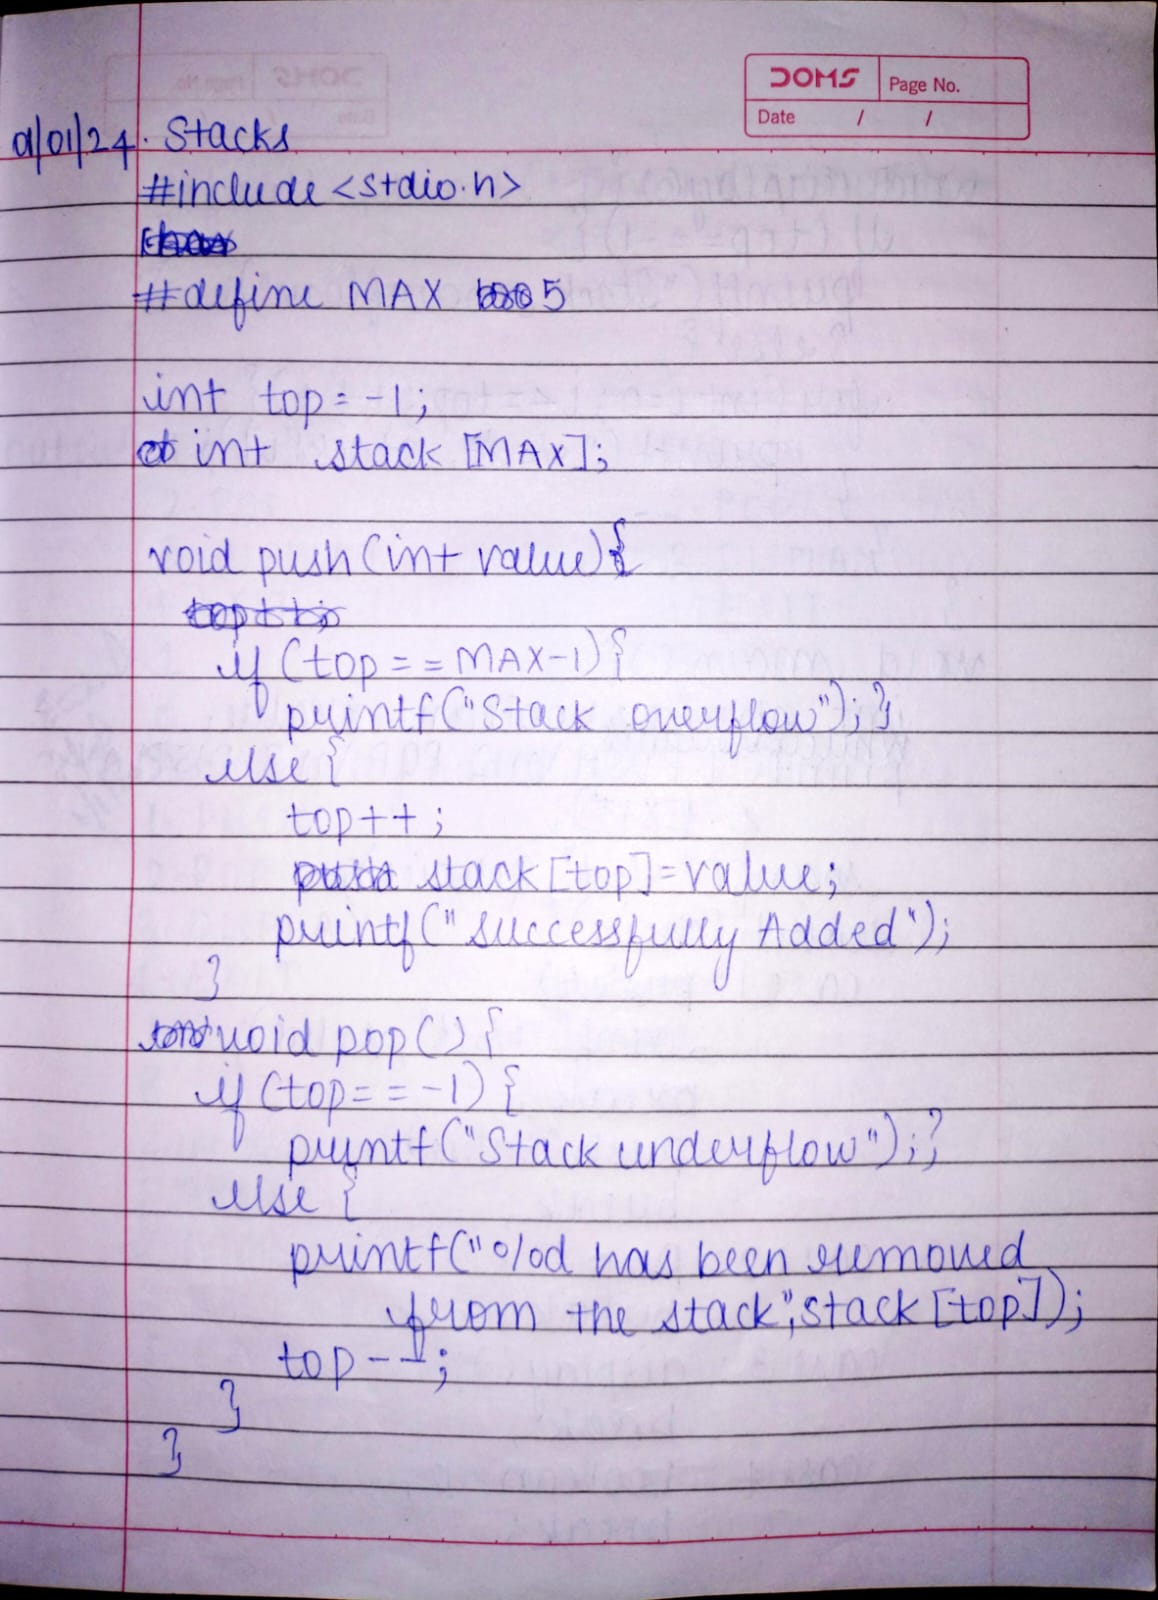 DOMS Page No.
Date / /
9/01/24. Stacks
#include <stdio.h>
#define MAX 5
int top = -1;
int stack [MAX];
void push (int value) {
top++;
if (top == MAX-1) {
printf("Stack overflow"); }
else {
top++;
push stack [top] = value;
printf("successfully Added");
}
int void pop () {
if (top == -1) {
printf("Stack underflow"); }
else {
printf("%d has been removed
from the stack", stack [top]);
top--;
}
}